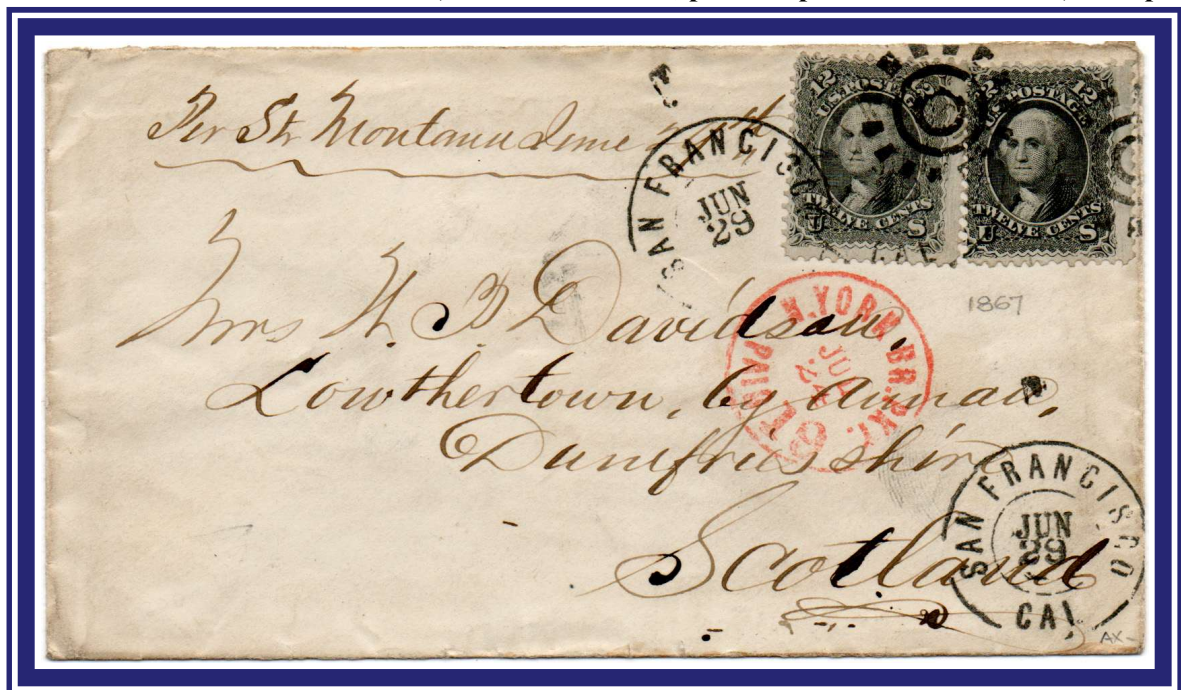 Per Str Montana June
SAN FRANCISCO
JUN
29
CAL
12 12
U.S. POSTAGE
TWELVE CENTS
U S
12 12
U.S. POSTAGE
TWELVE CENTS
U S
1867
N. YORK BR. PKT.
JUL
24
PAID
Mrs W. B Davidson,
Lowthertown, by Annan,
Dumfries shire
Scotland
SAN FRANCISCO
JUN
29
CAL
AX